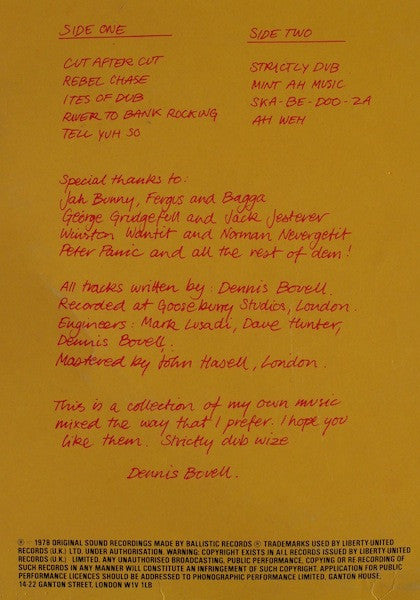 SIDE ONE
CUT AFTER CUT
REBEL CHASE
ITES OF DUB
RIVER TO BANK ROCKING
TELL YUH SO
SIDE TWO
STRICTLY DUB
MINT AH MUSIC
SKA-BE-DOO-ZA
AH WEH
Special thanks to:
Jah Bunny, Fergus and Bagga
George Grudgefull and Jack Jesterer
Winston Wantit and Norman Nevergetit
Peter Panic and all the rest of dem!
All tracks written by: Dennis Bovell.
Recorded at Gooseburry Studios, London.
Engineers: Mark Lusadi, Dave Hunter,
Dennis Bovell.
Mastered by John Hasell, London.
This is a collection of my own music
mixed the way that I prefer. I hope you
like them. Strictly dub wize
Dennis Bovell.
℗ 1978 ORIGINAL SOUND RECORDINGS MADE BY BALLISTIC RECORDS ® TRADEMARKS USED BY LIBERTY-UNITED
RECORDS (U.K.) LTD. UNDER AUTHORISATION. WARNING: COPYRIGHT EXISTS IN ALL RECORDS ISSUED BY LIBERTY-UNITED
RECORDS (U.K.) LIMITED. ANY UNAUTHORISED BROADCASTING, PUBLIC PERFORMANCE, COPYING OR RE-RECORDING OF
SUCH RECORDS IN ANY MANNER WILL CONSTITUTE AN INFRINGEMENT OF SUCH COPYRIGHT. APPLICATION FOR PUBLIC
PERFORMANCE LICENCES SHOULD BE ADDRESSED TO PHONOGRAPHIC PERFORMANCE LIMITED, GANTON HOUSE,
14-22 GANTON STREET, LONDON W1V 1LB